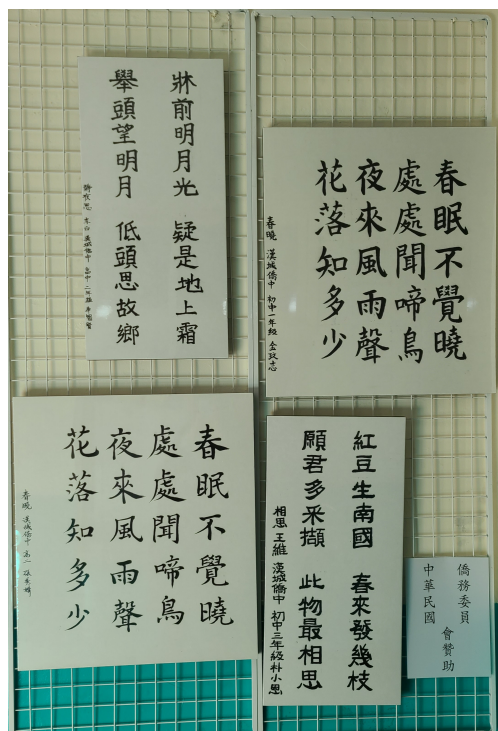 牀前明月光 疑是地上霜
舉頭望明月 低頭思故鄉
靜夜思 李白 漢城僑中 高中二年級
春眠不覺曉
處處聞啼鳥
夜來風雨聲
花落知多少
春曉 漢城僑中 初中一年級 金玟志
春眠不覺曉
處處聞啼鳥
夜來風雨聲
花落知多少
春曉 漢城僑中 高二
紅豆生南國 春來發幾枝
願君多采擷 此物最相思
相思 王維 漢城僑中 初中三年級 朴小恩
中華民國
僑務委員
會贊助